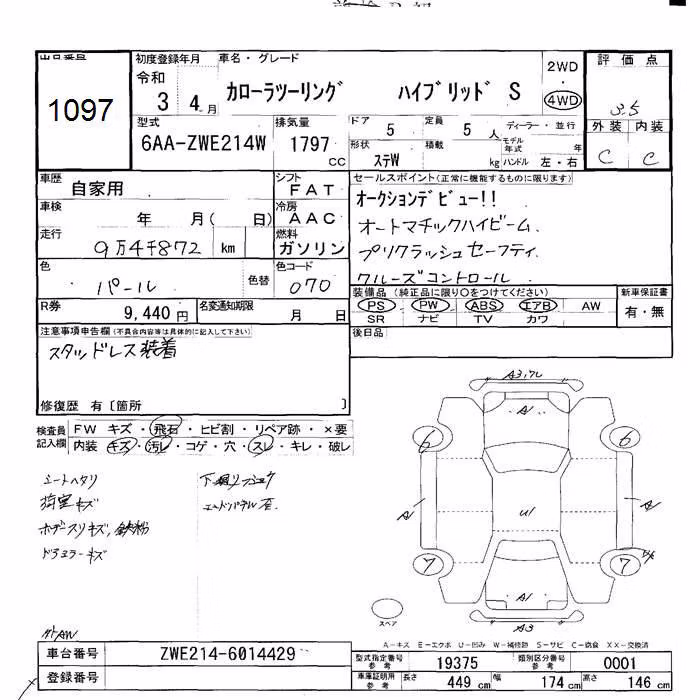 出品番号
1097
初度登録年月 車名・グレード
令和
3 4月 カローラツーリング ハイブリッド S
2WD
・
4WD
評価点
3.5
外装 内装
C C
型式 排気量 ドア 定員 ディーラー・並行
6AA-ZWE214W 1797 CC 5 5人
形状 積載 モデル年式 年
ステW kg ハンドル 左・右
車歴 自家用
シフト FAT
車検 年 月( 日)
冷房 AAC
走行 9万4千872 km
燃料 ガソリン
色 パール 色替
色コード 070
セールスポイント(正常に機能するものに限ります)
オークションデビュー!!
オートマチックハイビーム
プリクラッシュセーフティ
クルーズコントロール
R券 9,440円 名変通知期限 月 日
装備品(純正品に限り○をつけてください) 新車保証書
PS PW ABS エアB AW 有・無
SR ナビ TV カワ
後日品
注意事項申告欄(不具合内容等は具体的に記入して下さい)
スタッドレス装着
修復歴 有〔箇所 〕
検査員 FW キズ・飛石・ヒビ割・リペア跡・×要
記入欄 内装 キズ・汚レ・コゲ・穴・スレ・キレ・破レ
シートヘタリ
内室キズ
ドアミラーキズ
A3,
A
6 6
A U1 A
7 7
A1
A3
スペア
A-キズ E-エクボ U-凹み W-補修跡 S-サビ C-腐食 XX-交換済
外AW
車台番号 ZWE214-6014429
登録番号
型式指定番号 参考 19375 類別区分番号 参考 0001
車庫証明用 参考 長さ 449 cm 幅 174 cm 高さ 146 cm